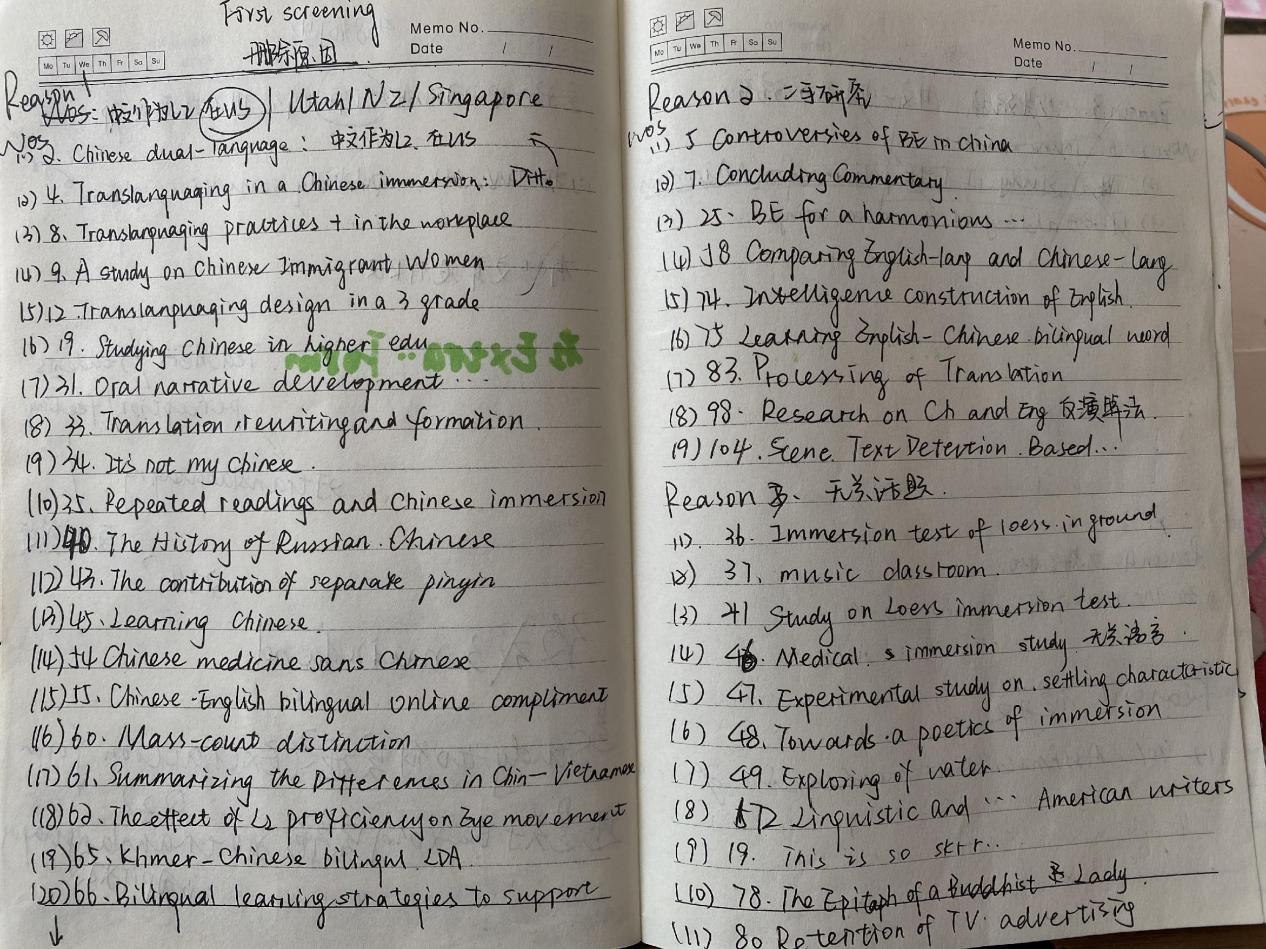 First screening
删除原因
Memo No.
Date / /
Mo Tu We Th Fr Sa Su
Reason 1
WOS: 中文作为L2 在US / Utah / NZ / Singapore
WOS
(1) 2. Chinese dual-language: 中文作为L2 在US
(2) 4. Translanguaging in a Chinese immersion: Ditto
(3) 8. Translanguaging practices + in the workplace
(4) 9. A study on Chinese Immigrant Women
(5) 12 Translanguaging design in a 3 grade
(6) 19. Studying Chinese in higher edu
(7) 31. Oral narrative development ...
(8) 33. Translation, rewriting and formation
(9) 34. It's not my Chinese.
(10) 35. Repeated readings and Chinese immersion
(11) 40. The History of Russian. Chinese
(12) 43. The contribution of separate pinyin
(13) 45. Learning Chinese.
(14) 54 Chinese medicine sans Chinese
(15) 55. Chinese-English bilingual online compliment
(16) 60. Mass-count distinction
(17) 61. Summarizing the Differences in Chin-Vietnamese
(18) 62. The effect of L2 proficiency on Eye movement
(19) 65. Khmer-Chinese bilingul LDA.
(20) 66. Bilingual learning strategies to support
↓
Memo No.
Date / /
Mo Tu We Th Fr Sa Su
Reason 2. 二手研究
WOS
(1) 5 Controversies of BE in China
(2) 7. Concluding Commentary
(3) 25. BE for a harmonious ...
(4) 58 Comparing English-lang and Chinese-lang
(5) 74. Intelligence construction of English.
(6) 75 Learning English-Chinese bilingual word
(7) 83. Processing of Translation
(8) 98. Research on Ch and Eng
(9) 104. Scene Text Detection Based...
Reason 3. 无关话题.
(1). 36. Immersion test of loess in ground
(2) 37. music classroom.
(3) 41 Study on Loess immersion test.
(4) 46. Medical s immersion study 无关语言.
(5) 47. Experimental study on settling characteristic
(6) 48. Towards a poetics of immersion
(7) 49. Exploring of water.
(8) Linguistic and ... American writers
(9) 19. This is so skrr..
(10) 78. The Epitaph of a Buddhist Lady
(11) 80 Retention of TV. advertising